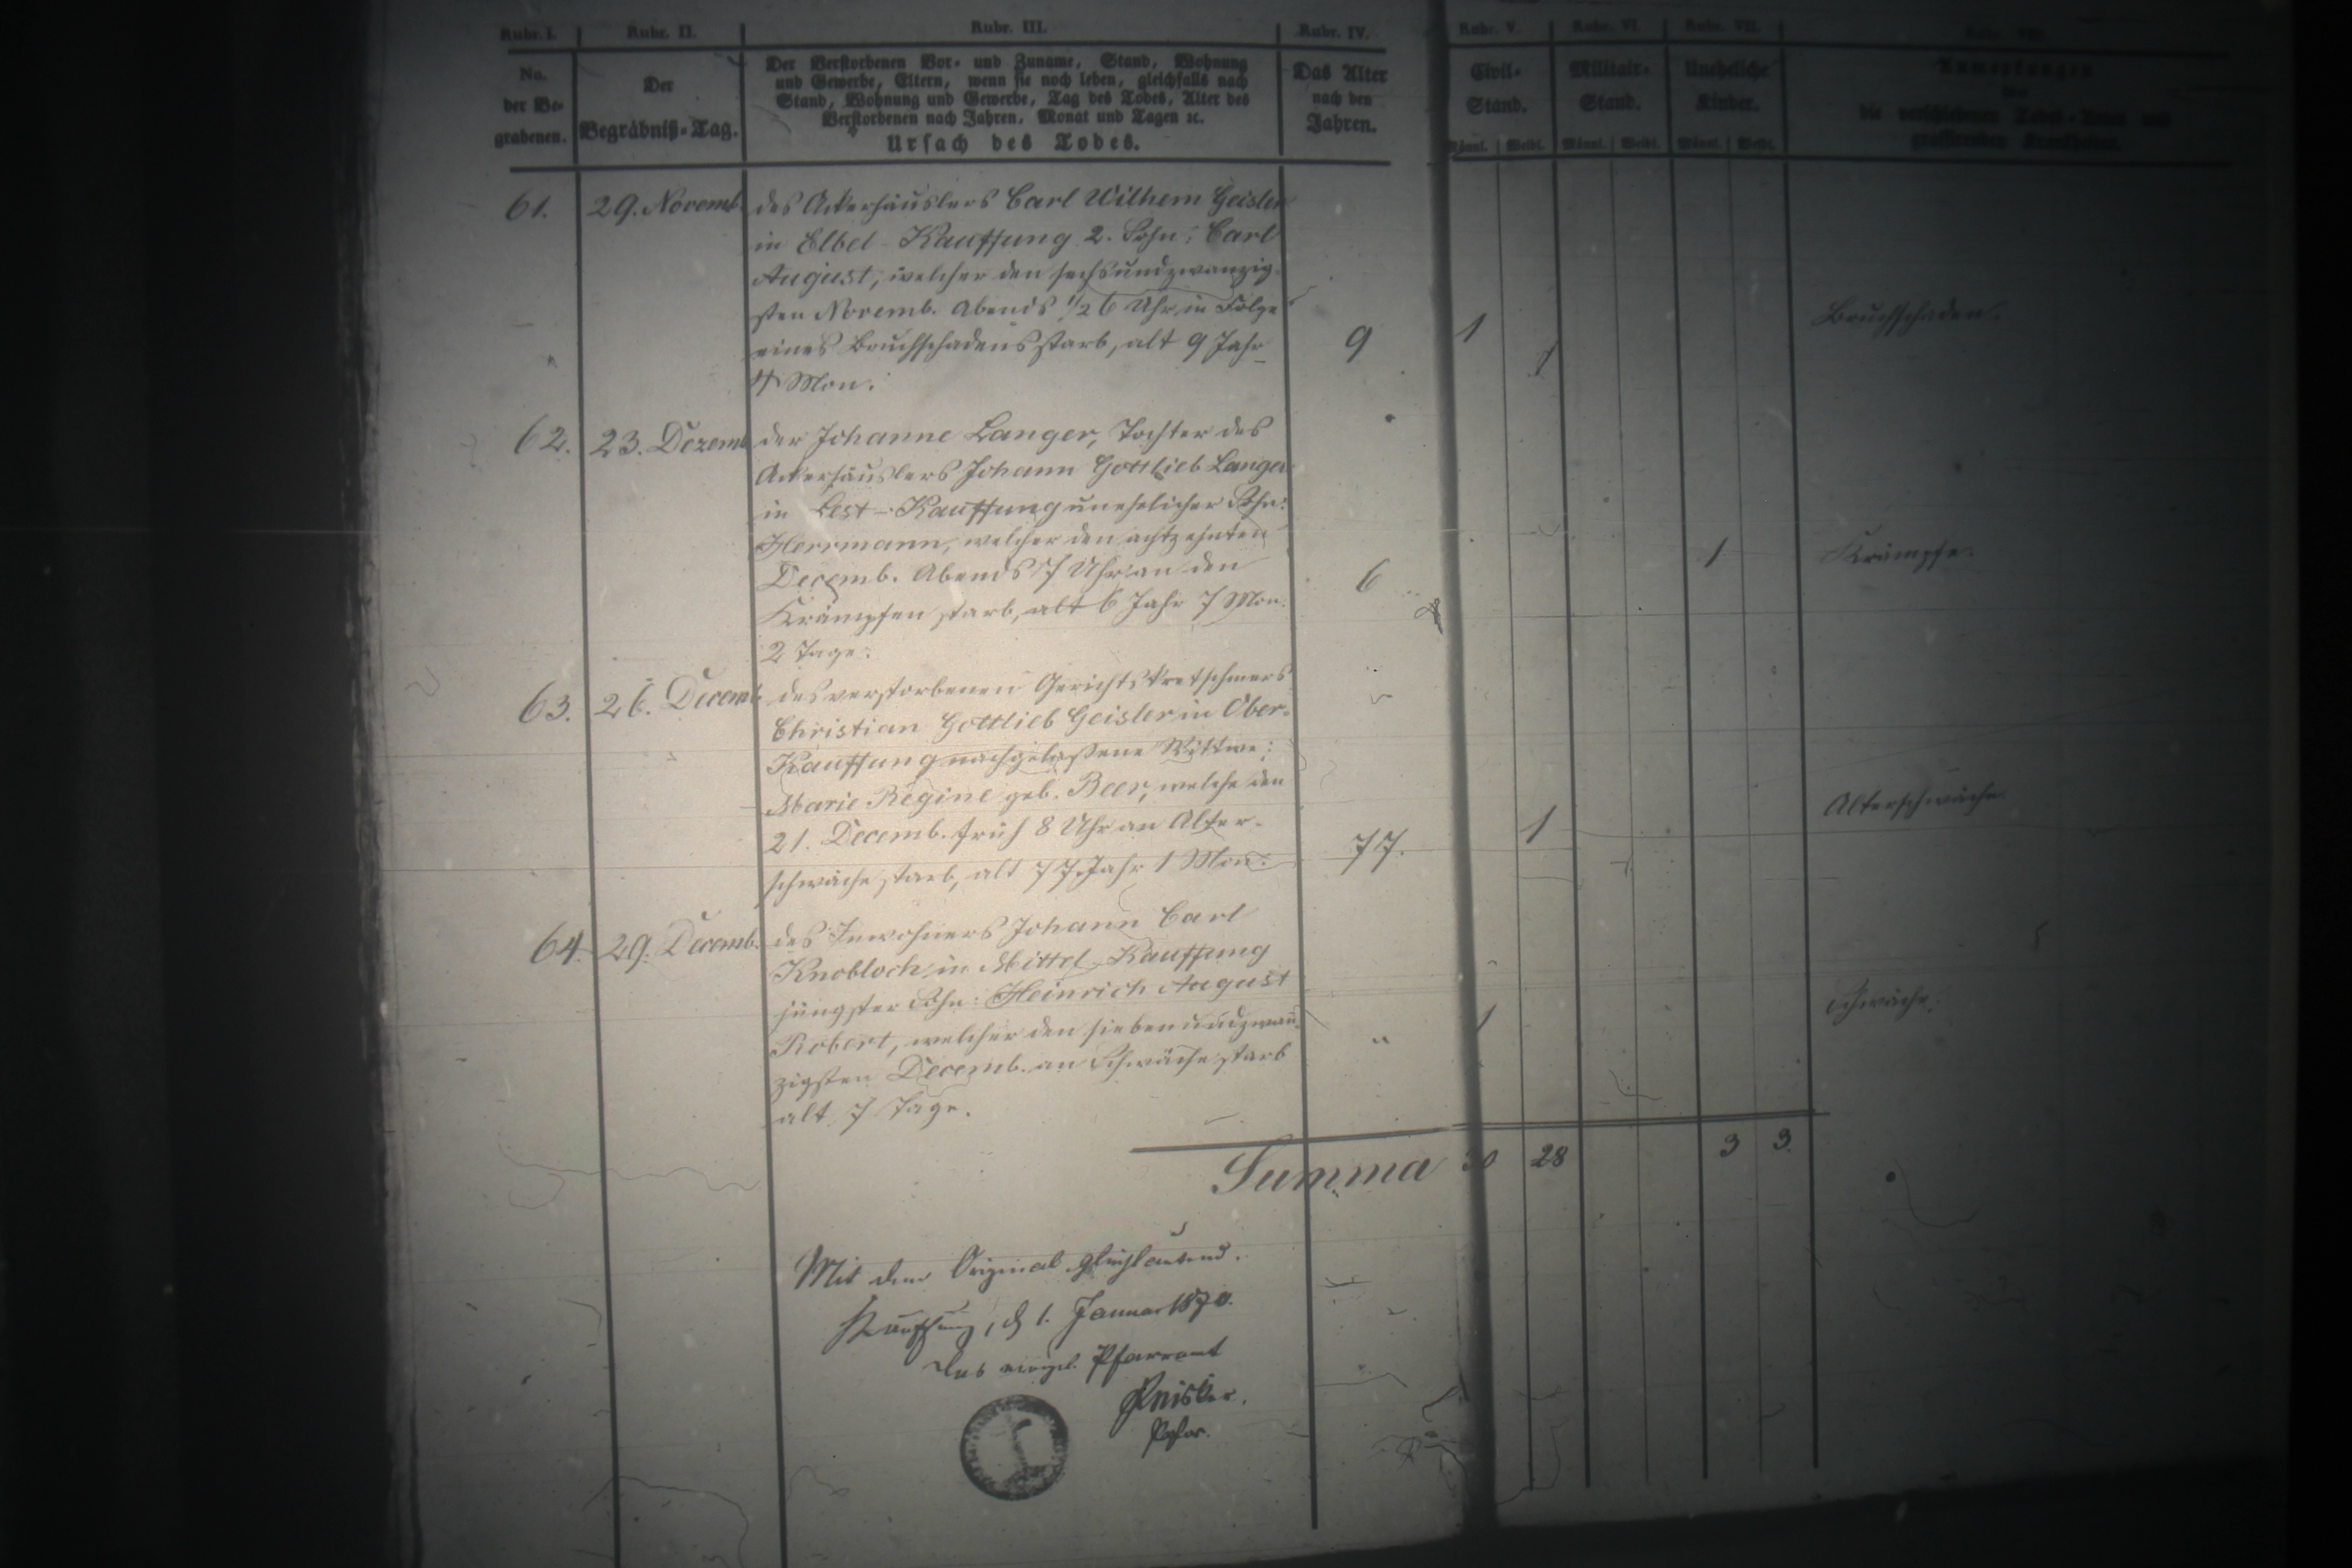 Rubr. I. Rubr. II. Rubr. III. Rubr. IV. Rubr. V. Rubr. VI. Rubr. VII.
No.
der Be-
grabenen.
Der
Begräbniß-Tag.
Der Verstorbenen Vor- und Zuname, Stand, Wohnung
und Gewerbe, Eltern, wenn sie noch leben, gleichfalls nach
Stand, Wohnung und Gewerbe, Tag des Todes, Alter des
Verstorbenen nach Jahren, Monat und Tagen ꝛc.
Ursach des Todes.
Das Alter
nach den
Jahren.
Civil-
Stand.
Männl. Weibl.
Militair-
Stand.
Männl. Weibl.
Uneheliche
Kinder.
Männl. Weibl.
Anmerkungen
die verschiedenen Todes-Arten und
grassirenden Krankheiten.
61. 29. Novemb. des Ackerhäuslers Carl Wilhem Geisler
in Elbel-Kauffung 2. Sohn: Carl
August, welcher den sechsundzwanzig-
sten Novemb. Abends 1/2 6 Uhr in Folge
eines Bruchschadens starb, alt 9 Jahr
4 Mon.
9 1 1 Bruchschaden.
62. 23. Dezemb. der Johanne Langer, Tochter des
Ackerhäuslers Johann Gottlieb Langer
in Lest-Kauffung unehelicher Sohn:
Herrmann, welcher den achtzehnten
Decemb. Abends 7 Uhr an den
Krämpfen starb, alt 6 Jahr 7 Mon.
2 Tage.
6 1 Krämpfe.
63. 26. Decemb. des verstorbenen Gerichtskretschmers
Christian Gottlieb Geisler in Ober-
Kauffung nachgelaßene Wittwe:
Marie Regine geb. Beer, welche den
21. Decemb. früh 8 Uhr an Alter-
schwäche starb, alt 77 Jahr 1 Mon.
77. 1 Alterschwäche
64. 29. Decemb. des Inwohners Johann Carl
Knobloch in Mittel-Kauffung
jüngster Sohn: Heinrich August
Robert, welcher den siebenundzwan-
zigsten Decemb. an Schwäche starb
alt 7 Tage.
" 1 Schwäche.
Summa 30 28 3 3.
Mit dem Original gleichlautend.
Kauffung, d. 1. Januar 1870.
Das evangel. Pfarramt